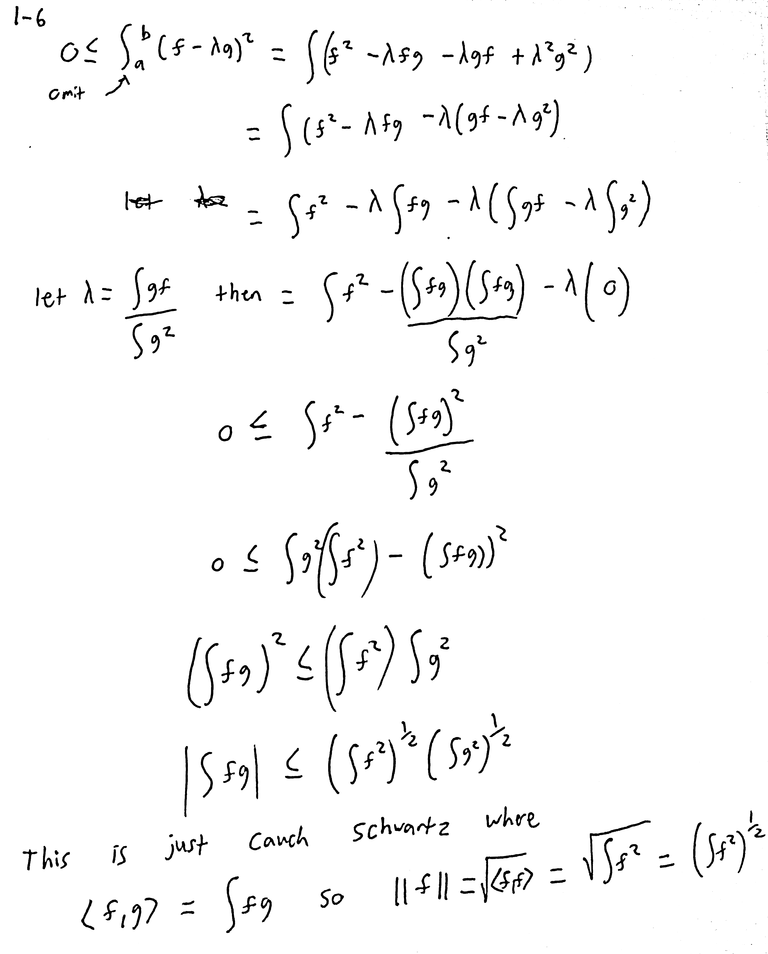 1-6
0 ≤ ∫ₐᵇ (f - λg)² = ∫(f² - λfg - λgf + λ²g²)
omit ↗
= ∫(f² - λfg - λ(gf - λg²)
let = ∫f² - λ∫fg - λ(∫gf - λ∫g²)
let λ = ∫gf / ∫g² then = ∫f² - (∫fg)(∫fg) / ∫g² - λ(0)
0 ≤ ∫f² - (∫fg)² / ∫g²
0 ≤ ∫g²(∫f²) - (∫fg))²
(∫fg)² ≤ (∫f²) ∫g²
|∫fg| ≤ (∫f²)^½ (∫g²)^½
This is just Cauch Schwartz where
⟨f,g⟩ = ∫fg so ||f|| = √⟨f,f⟩ = √∫f² = (∫f²)^½